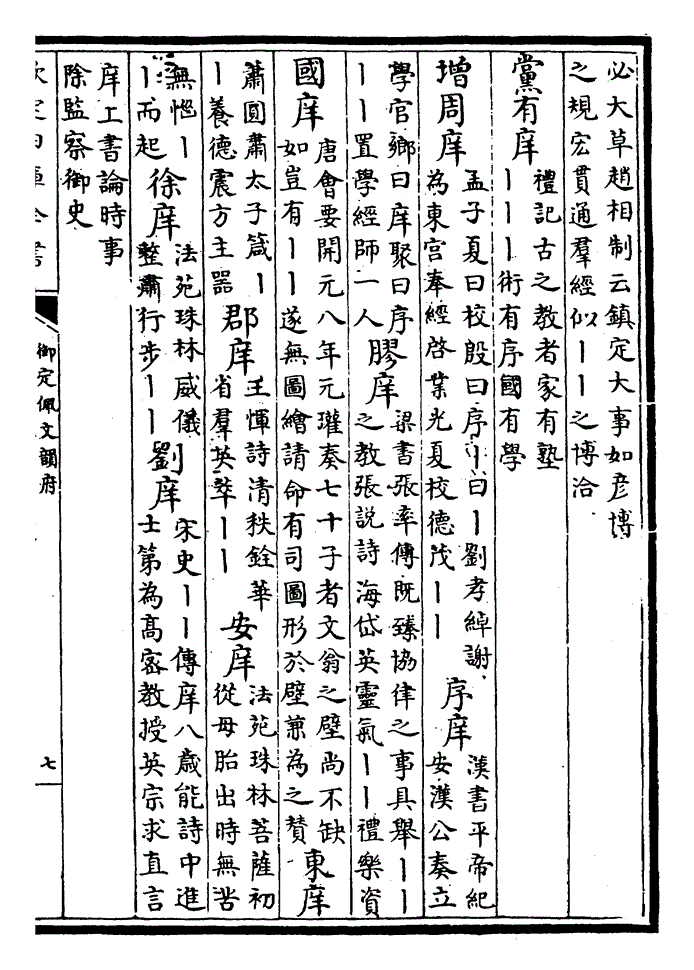 必大草趙相制云鎮定大事如彥博
之規宏貫通羣經似丨丨之博洽
黨有庠
禮記古之教者家有塾
丨丨丨術有序國有學
增周庠
孟子夏曰校殷曰序丨曰丨劉孝綽謝
為東宮奉經啓業光夏校德茂丨丨
序庠
漢書平帝紀
安漢公奏立
學官鄉曰庠聚曰序
丨丨置學經師一人
膠庠
梁書張率傳既臻協律之事具舉丨丨
之教張說詩海岱英靈氣丨丨禮樂資
國庠
唐會要開元八年元瓘奏七十子者文翁之壁尚不缺
如豈有丨丨遂無圖繪請命有司圖形於壁兼為之贊
東庠
蕭圓肅太子箴丨
丨養德震方主器
郡庠
王惲詩清秩銓華
省羣英萃丨丨
安庠
法苑珠林菩薩初
從母胎出時無苦
無惱丨
丨而起
徐庠
法苑珠林威儀
整肅行步丨丨
劉庠
宋史丨丨傳庠八歲能詩中進
士第為高密教授英宗求直言
庠上書論時事
除監察御史
欽定四庫全書
御定佩文韻府
七